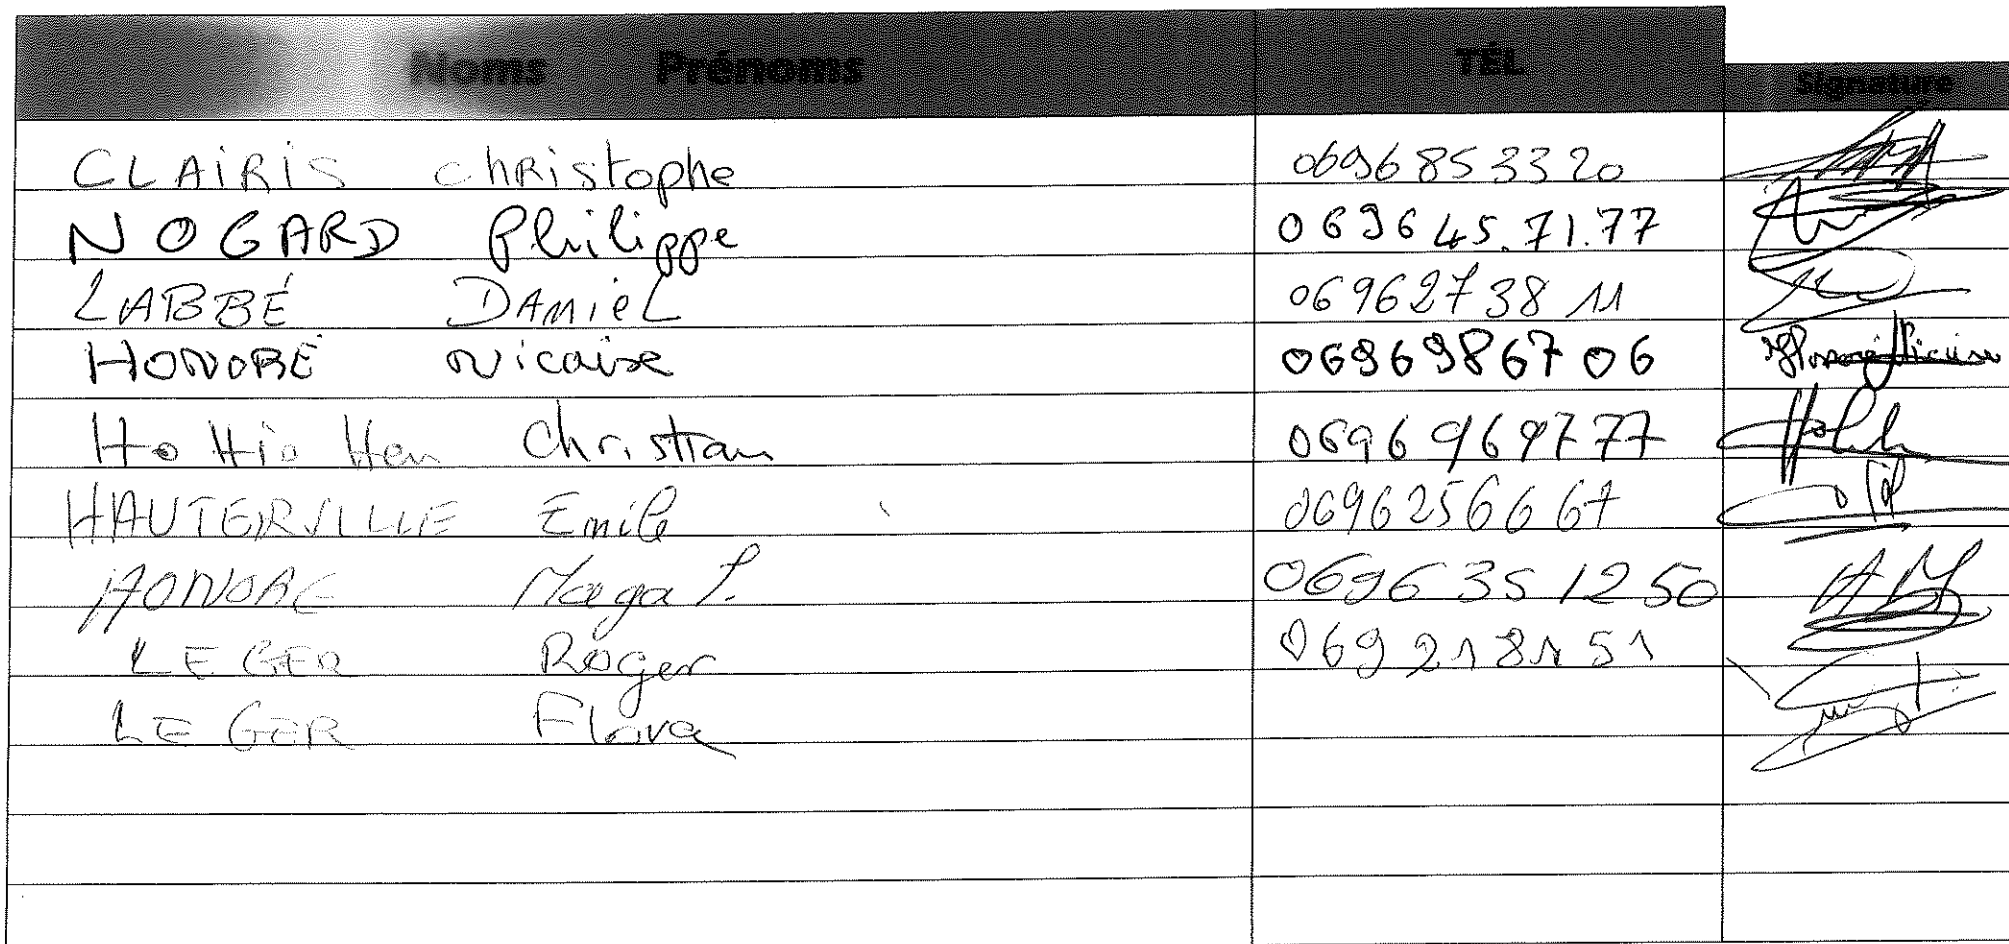 Noms Prénoms TÉL Signature
CLAIRIS Christophe 0696853320
NOGARD Philippe 0696 45.71.77
LABBÉ DANIEL 0696273811
HONORÉ Nicaise 0696986706
Ho Hio Hen Christian 0696969777
HAUTERVILLE Emile 0696256667
HONORE Magal. 0696351250
LEGER Roger 069218151
LEGER Flora